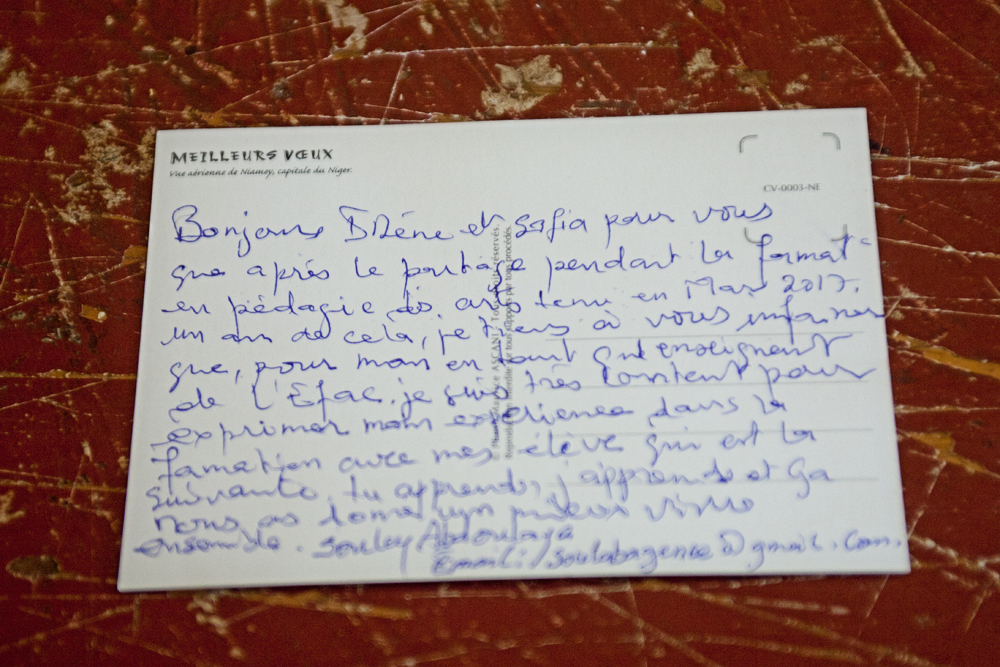 MEILLEURS VŒUX
Vue aérienne de Niamey, capitale du Niger.
CV-0003-NE
Bonjour Irène et Safia pour vous
que après le partage pendant la format°
en pédagie des arts tenu en Mars 2017.
un an de cela, je tiens à vous informer
que, pour mon en tant qu'enseignent
de l'Efac. je suis très content pour
exprimer mon experience dans la
formation avec mes élève qui est la
suivante, tu apprends, j'apprends et ça
nous as vivre
ensemble. Souley Abdoulaye
Email: soulabagence@gmail.com.